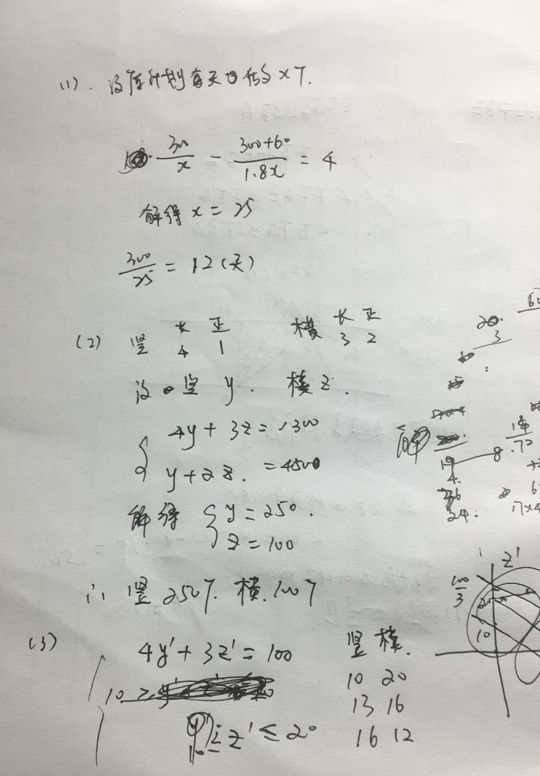 (1). 设原计划每天生产x个.
300/x - (300+60)/1.8x = 4
解得 x = 25
300/25 = 12(天)
(2) 竖 长4 正1 横 长3 正2
设 竖 y. 横 z.
{ 4y + 3z = 1300
y + 2z. = 450
解得 { y = 250.
z = 100
∴ 竖 250个. 横. 100个
(3) 4y' + 3z' = 100 竖 横.
10 20
13 16
z' ≤ 20 16 12
20.
3
解
19
4.
8
24.
z'
100/3
25
10